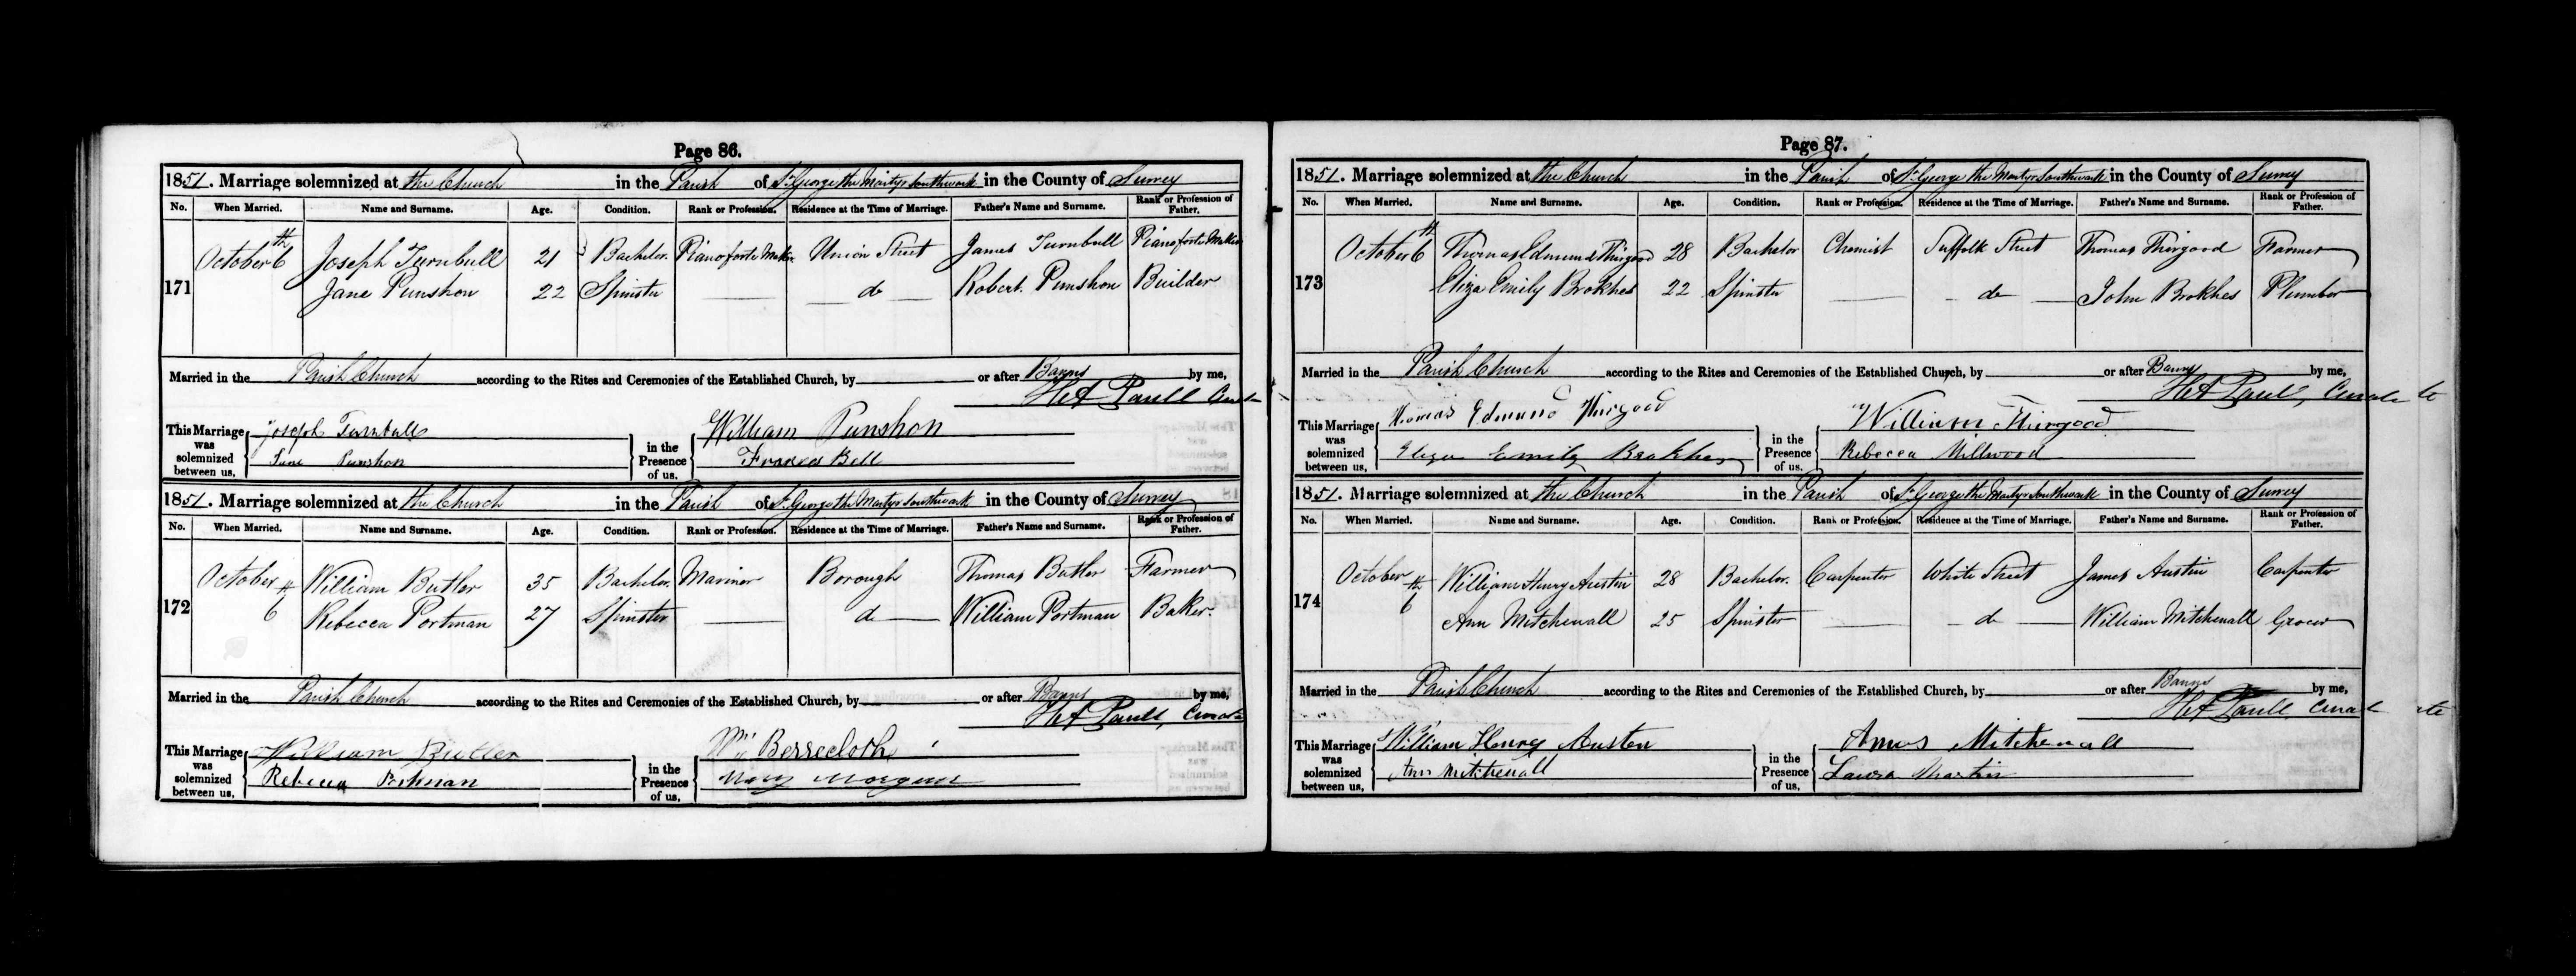 Page 86.
1851. Marriage solemnized at the Church in the Parish of St George the Martyr Southwark in the County of Surrey
No. When Married. Name and Surname. Age. Condition. Rank or Profession. Residence at the Time of Marriage. Father's Name and Surname. Rank or Profession of Father.
171 October 6th Joseph Turnbull 21 Bachelor Pianoforte Maker Union Street James Turnbull Pianoforte Maker
Jane Punshon 22 Spinster do Robert Punshon Builder
Married in the Parish Church according to the Rites and Ceremonies of the Established Church, by or after Banns by me,
Paull Curate
This Marriage was solemnized between us, Joseph Turnbull Jane Punshon in the Presence of us. William Punshon Frances Bell
1851. Marriage solemnized at the Church in the Parish of St George the Martyr Southwark in the County of Surrey
No. When Married. Name and Surname. Age. Condition. Rank or Profession. Residence at the Time of Marriage. Father's Name and Surname. Rank or Profession of Father.
172 October 6th William Butler 35 Bachelor Mariner Borough Thomas Butler Farmer
Rebecca Portman 27 Spinster do William Portman Baker
Married in the Parish Church according to the Rites and Ceremonies of the Established Church, by or after Banns by me,
Paull, Curate
This Marriage was solemnized between us, William Butler Rebecca Portman in the Presence of us. Wm Berrecloth Mary Morgan
Page 87.
1851. Marriage solemnized at the Church in the Parish of St George the Martyr Southwark in the County of Surrey
No. When Married. Name and Surname. Age. Condition. Rank or Profession. Residence at the Time of Marriage. Father's Name and Surname. Rank or Profession of Father.
173 October 6th Thomas Edmund Thirgood 28 Bachelor Chemist Suffolk Street Thomas Thirgood Farmer
Eliza Emily Brokhes 22 Spinster do John Brokhes Plumber
Married in the Parish Church according to the Rites and Ceremonies of the Established Church, by or after Banns by me,
Paull, Curate
This Marriage was solemnized between us, Thomas Edmund Thirgood Eliza Emily Brokhes in the Presence of us. William Thirgood Rebecca Millwood
1851. Marriage solemnized at the Church in the Parish of St George the Martyr Southwark in the County of Surrey
No. When Married. Name and Surname. Age. Condition. Rank or Profession. Residence at the Time of Marriage. Father's Name and Surname. Rank or Profession of Father.
174 October 6th William Henry Austin 28 Bachelor Carpenter White Street James Austin Carpenter
Ann Mitchenall 25 Spinster do William Mitchenall Grocer
Married in the Parish Church according to the Rites and Ceremonies of the Established Church, by or after Banns by me,
Paull Curate
This Marriage was solemnized between us, William Henry Austen Ann Mitchenall in the Presence of us. Amos Mitchenall Laura Martin